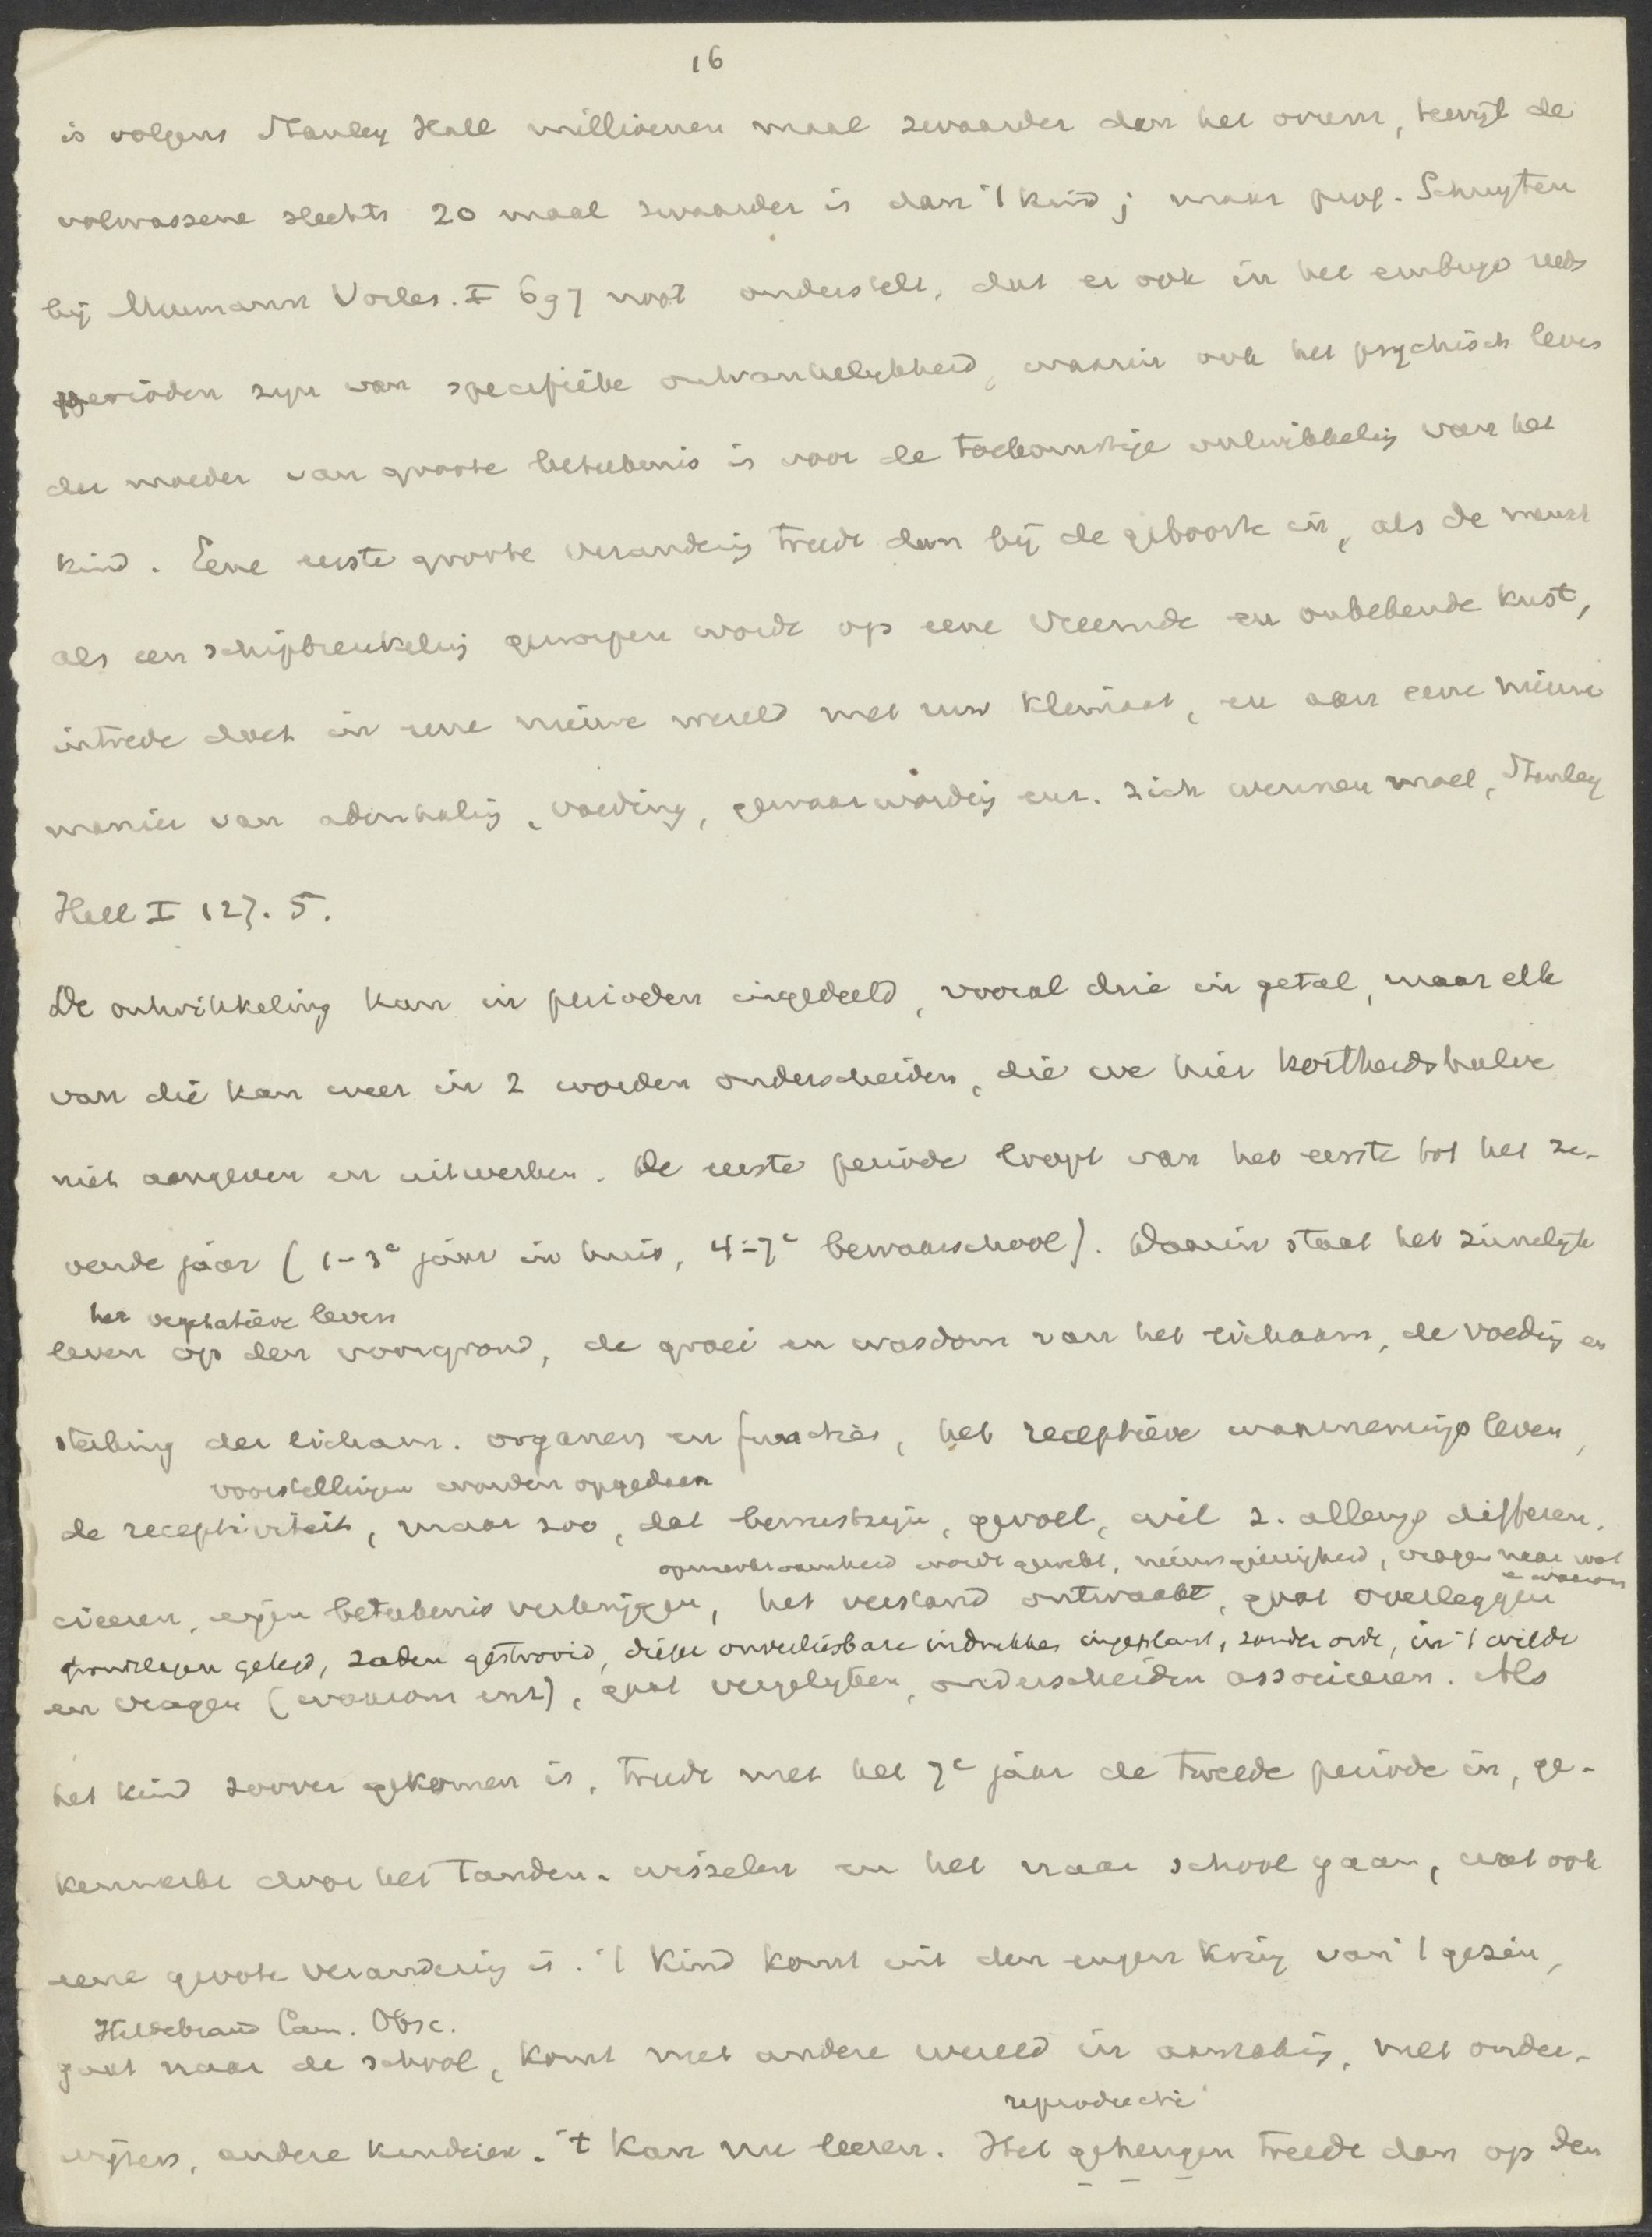 16
is volgens Stanley Hall millioenen maal zwaarder dan het ovum, terwijl de
volwassene slechts 20 maal zwaarder is dan 't kind; maar prof. Schuyten
bij Meumann Vorles. I 697 noot onderstelt, dat er ook in het embryo reeds
perioden zijn van specifieke ontvankelijkheid, waarin ook het psychisch leven
der moeder van groote beteekenis is voor de toekomstige ontwikkeling van het
kind. Eene eerste groote verandering treedt dan bij de geboorte in, als de mensch
als een schipbreukeling geworpen wordt op eene vreemde en onbekende kust,
intrede doet in eene nieuwe wereld met ruw klimaat, en aan eene nieuwe
manier van ademhaling, voeding, gewaarwording enz. zich wennen moet, Stanley
Hall I 127. 5.
De ontwikkeling kan in perioden ingedeeld, vooral drie in getal, maar elk
van die kan weer in 2 worden onderscheiden, die we hier kortheidshalve
niet aangeven en uitwerken. De eerste periode loopt van het eerste tot het ze-
vende jaar (1-3e jaar in huis, 4-7e bewaarschool). Daarin staat het zinnelijk
het vegetatieve leven
leven op den voorgrond, de groei en wasdom van het lichaam, de voeding en
sterking der licham. organen en functies, het receptieve waarnemingsleven,
voorstellingen worden opgedaan
de receptiviteit, maar zoo, dat bewustzijn, gevoel, wil z. allengs differen-
opmerkzaamheid wordt gewekt, nieuwsgierigheid, vragen naar wat
en waarom
cieeren, eigen beteekenis verkrijgen, het verstand ontwaakt, gaat overleggen
grondslagen gelegd, zaden gestrooid, diepe onverliesbare indrukken ingeplant, zonder orde, in 't wilde
en vragen (waarom enz), gaat vergelijken, onderscheiden associeeren. Als
het kind zoover gekomen is, treedt met het 7e jaar de tweede periode in, ge-
kenmerkt door het tanden-wisselen en het naar school gaan, wat ook
eene groote verandering is. 't Kind komt uit den engen kring van 't gezin,
Hildebrand Cam. Obsc.
gaat naar de school, komt met andere wereld in aanraking, met onder-
wijzers, andere kinderen. 't Kan nu leeren. Het
reproductie
geheugen treedt dan op den